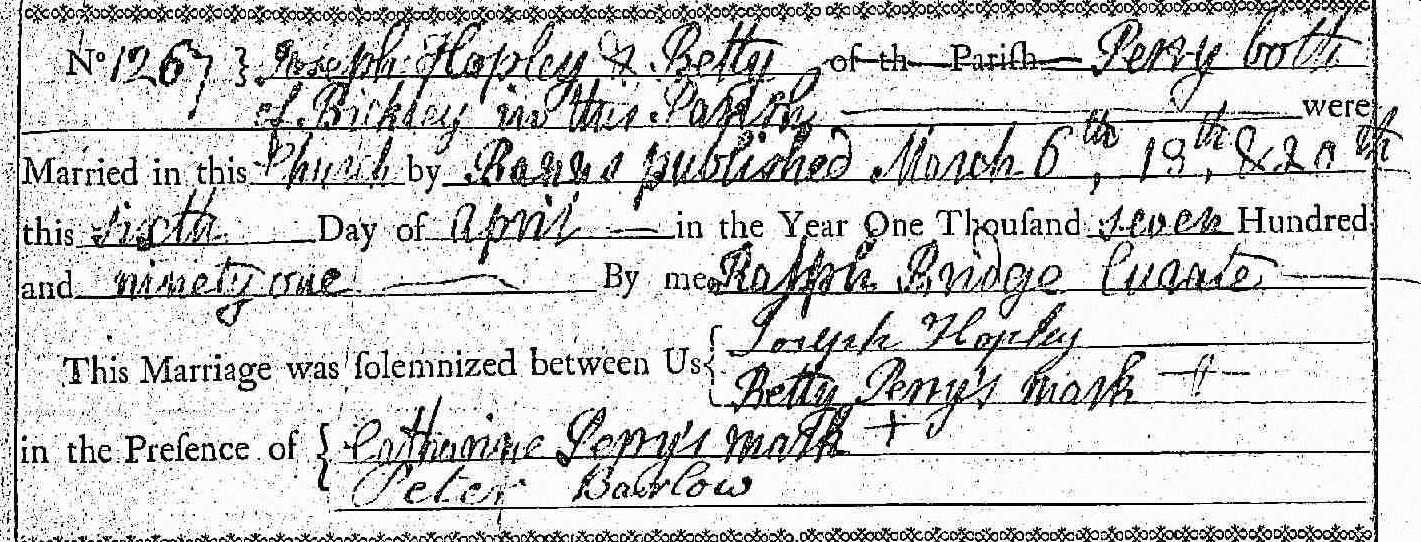 No 1267 } Joseph Hopley & Betty of th Pariſh Perry both
of Bickley in this Parish were
Married in this Church by Banns published March 6th, 13th, & 20th
this sixth Day of April in the Year One Thouſand seven Hundred
and ninety one By me Ralph Bridge Curate
This Marriage was ſolemnized between Us { Joseph Hopley
Betty Perry's mark +
in the Preſence of { Catharine Perry's mark +
Peter Barlow